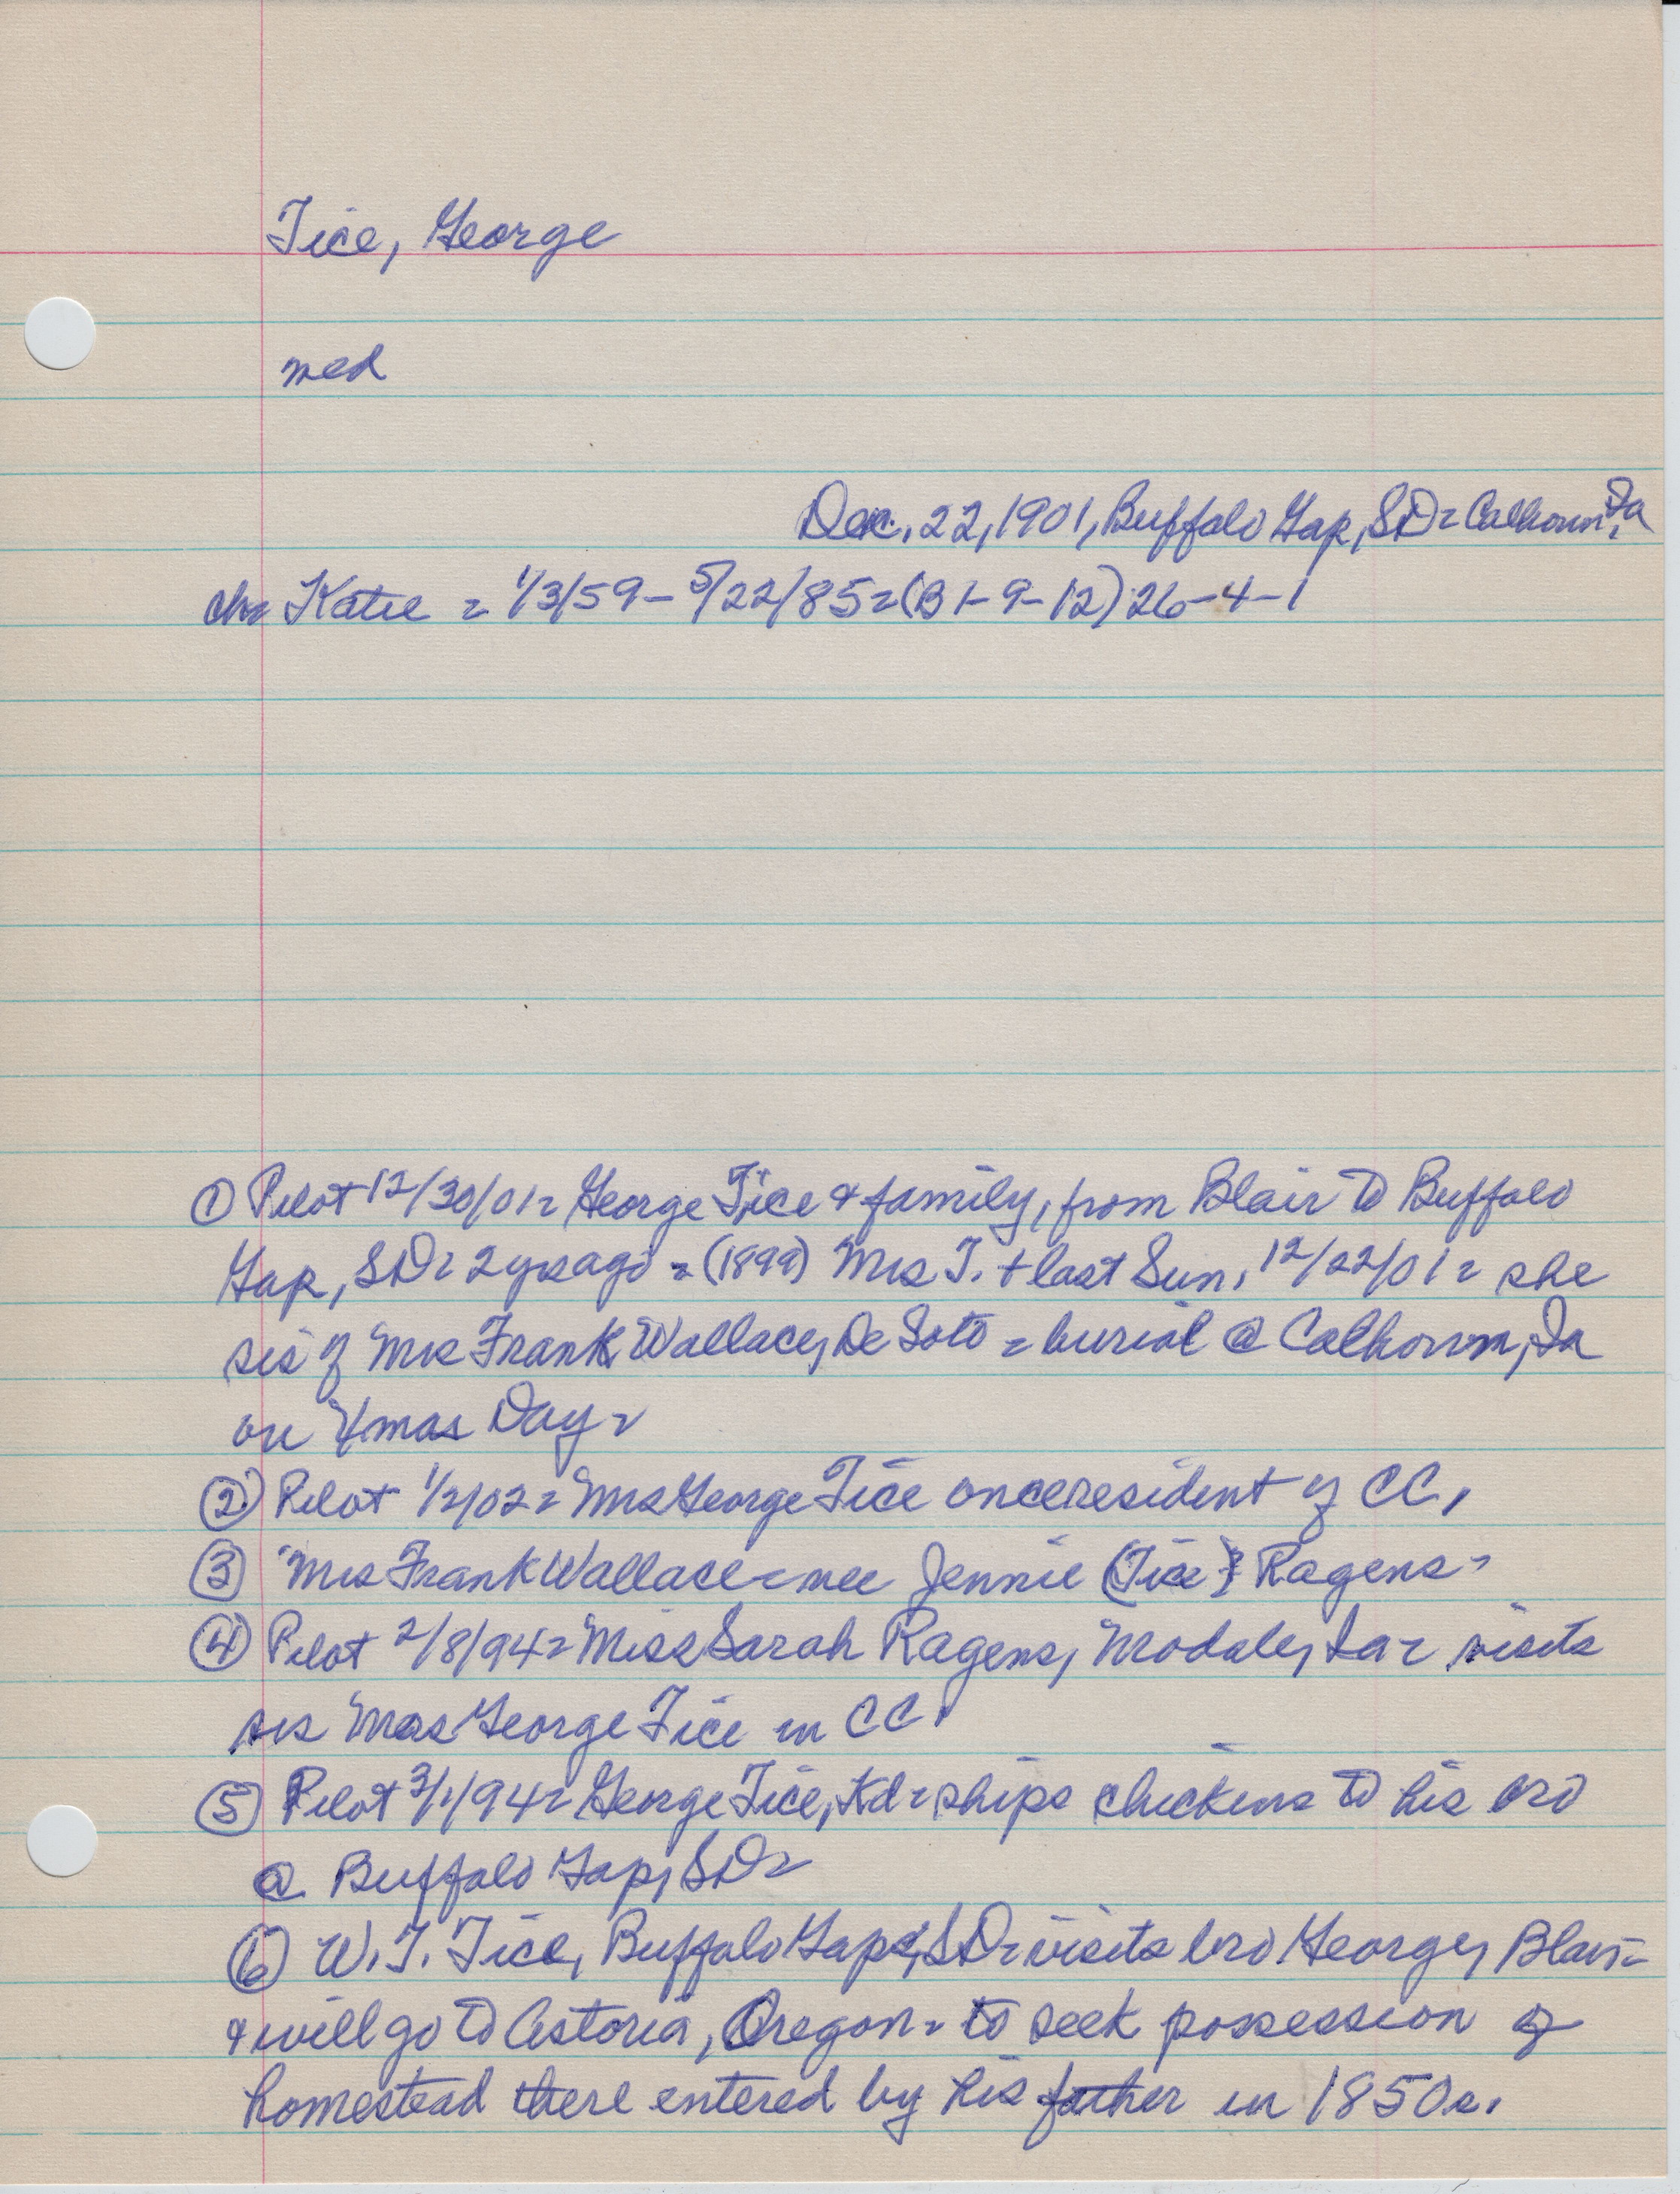 Tice, George
med
Dec. 22, 1901, Buffalo Gap, SD = Calhoun, Ia
ch = Katie = 1/3/59 - 5/22/85 = (B 1-9-12) 26-4-1
① Pilot 12/30/01 = George Tice & family, from Blair to Buffalo
Gap, SD = 2 yrs ago = (1899) Mrs T. + last Sun, 12/22/01 = she
sis of Mrs Frank Wallace, De Soto = burial @ Calhoun, Ia
on Xmas Day =
② Pilot 1/2/02 = Mrs George Tice once resident of CC.
③ Mrs Frank Wallace = nee Jennie (Tice) Ragens =
④ Pilot 2/8/94 = Miss Sarah Ragens, Modale, Ia = visits
sis Mrs George Tice in CC.
⑤ Pilot 3/1/94 = George Tice, Kd = ships chickens to his bro
@ Buffalo Gap, SD =
⑥ W. T. Tice, Buffalo Gap, SD = visits bro George, Blair =
& will go to Astoria, Oregon = to seek possession of
homestead there entered by his father in 1850s.